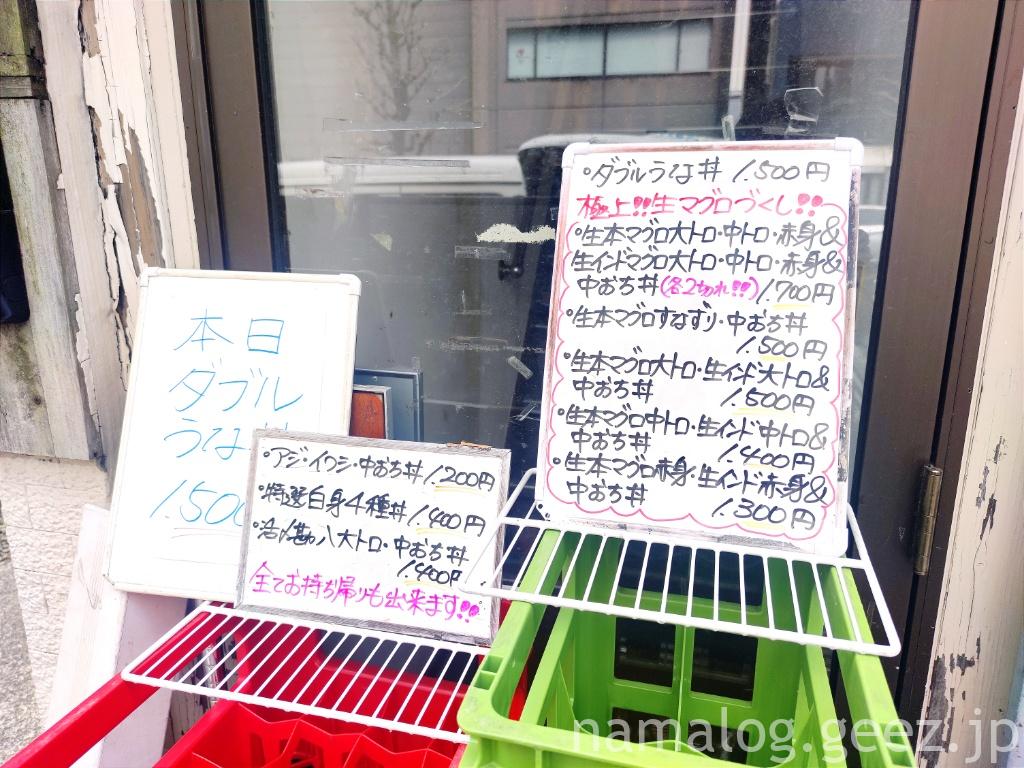 本日
ダブル
うな
1.500
・アジ・イワシ・中おち丼 1.200円
・特選白身4種丼 1.400円
・活〆勘八大トロ・中おち丼
1.400円
全てお持ち帰りも出来ます!!
・ダブルうな丼 1.500円
極上!!生マグロづくし!!
・生本マグロ大トロ・中トロ・赤身&
生インドマグロ大トロ・中トロ・赤身&
中おち丼(各2切れ!!) 1.700円
・生本マグロすなずり・中おち丼
1.500円
・生本マグロ大トロ・生インド大トロ&
中おち丼 1.500円
・生本マグロ中トロ・生インド中トロ&
中おち丼 1.400円
・生本マグロ赤身・生インド赤身&
中おち丼 1.300円
namalog.geez.jp